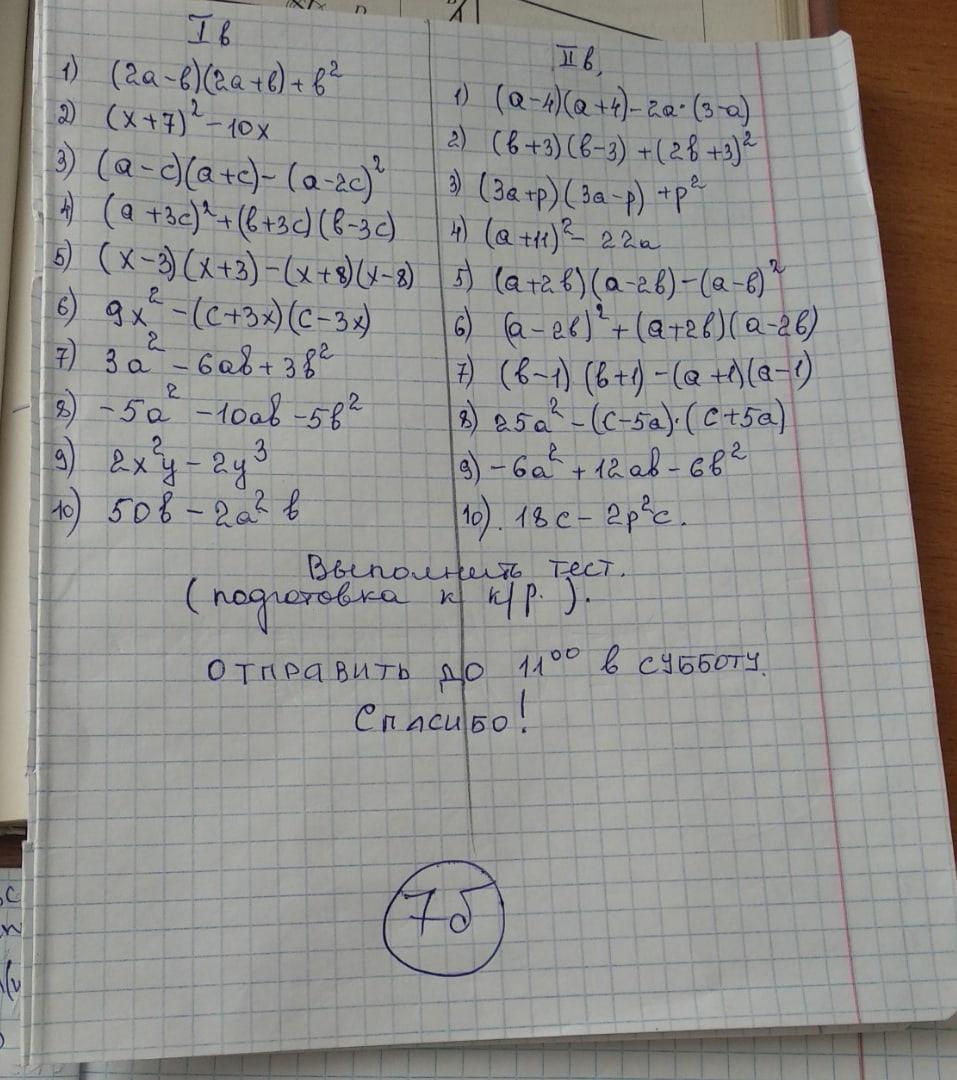 I в
1) (2a-в)(2a+в)+в²
2) (x+7)²-10x
3) (a-c)(a+c)-(a-2c)²
4) (a+3c)²+(в+3c)(в-3c)
5) (x-3)(x+3)-(x+8)(x-8)
6) 9x²-(c+3x)(c-3x)
7) 3a²-6aв+3в²
8) -5a²-10aв-5в²
9) 2x²y-2y³
10) 50в-2a²в
II в,
1) (a-4)(a+4)-2a·(3-a)
2) (в+3)(в-3)+(2в+3)²
3) (3a+p)(3a-p)+p²
4) (a+11)²-22a
5) (a+2в)(a-2в)-(a-в)²
6) (a-2в)²+(a+2в)(a-2в)
7) (в-1)(в+1)-(a+1)(a-1)
8) 25a²-(c-5a)·(c+5a)
9) -6a²+12aв-6в²
10). 18c-2p²c.
Выполнить тест.
(подготовка к к/р.).
Отправить до 11⁰⁰ в субботу.
Спасибо!
7б